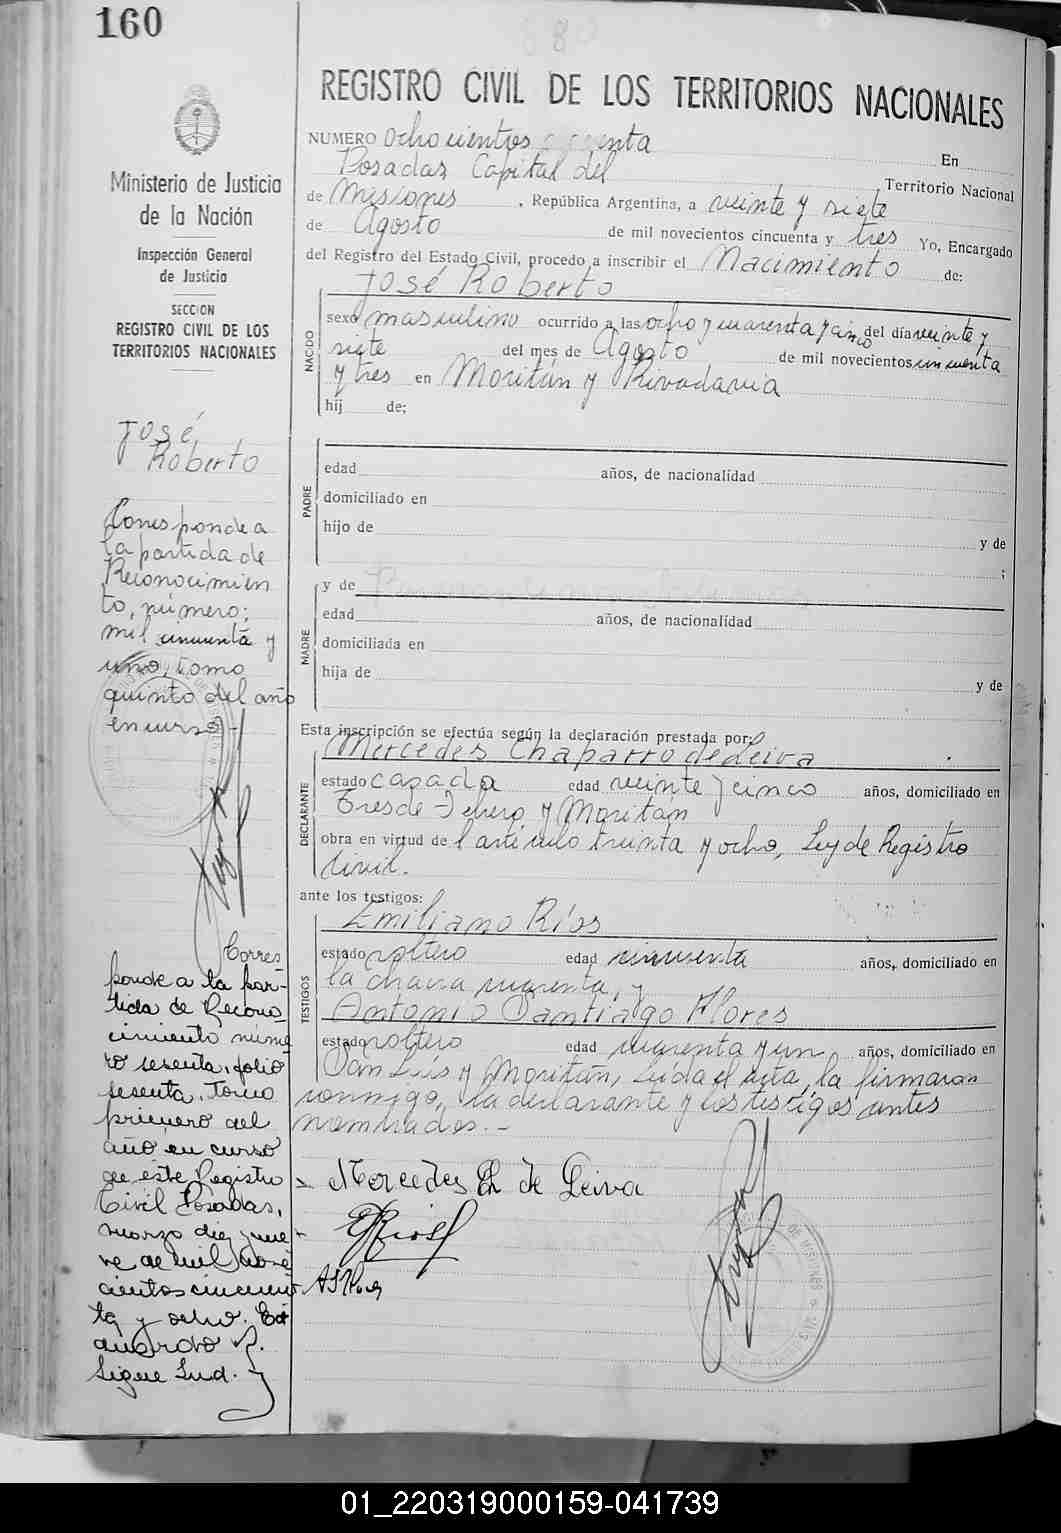 160
Ministerio de Justicia
de la Nación
Inspección General
de Justicia
SECCION
REGISTRO CIVIL DE LOS
TERRITORIOS NACIONALES
José
Roberto
Corresponde a
la partida de
Reconocimien
to, número;
mil cincuenta y
uno, tomo
quinto del año
en curso.-
Corres-
ponde a la par-
tida de Recono-
cimiento núme
ro sesenta, folio
sesenta, Tomo
primero del
año en curso
de este Registro
Civil Posadas,
marzo diez y nue
ve de mil nove
cientos cincuen
ta y ocho.
Sigue Lud.
REGISTRO CIVIL DE LOS TERRITORIOS NACIONALES
NUMERO Ochocientos
En
Posadas Capital del Territorio Nacional
de Misiones, República Argentina, a veinte y siete
de Agosto de mil novecientos cincuenta y tres Yo, Encargado
del Registro del Estado Civil, procedo a inscribir el Nacimiento de:
José Roberto
NACIDO
sexo masculino ocurrido a las ocho y cuarenta y cinco del día veinte y
siete del mes de Agosto de mil novecientos cincuenta
y tres en Moritán y Rivadavia
hij de:
PADRE
edad años, de nacionalidad
domiciliado en
hijo de y de
;
MADRE
y de
edad años, de nacionalidad
domiciliada en
hija de y de
Esta inscripción se efectúa según la declaración prestada por:
Mercedes Chaparro de Leiva
DECLARANTE
estado casada edad veinte y cinco años, domiciliado en
Tres de Febrero y Moritán
obra en virtud de l artículo treinta y ocho, Ley de Registro
Civil.
ante los testigos:
Emiliano Ríos
TESTIGOS
estado soltero edad cincuenta años, domiciliado en
la chacra cuarenta, y
Antonio Santiago Flores
estado soltero edad cuarenta y un años, domiciliado en
San Luis y Moritán, Leída el acta, la firmaran
conmigo, la declarante y los testigos antes
nombrados.-
Mercedes Ch de Leiva
ERios
01_220319000159-041739